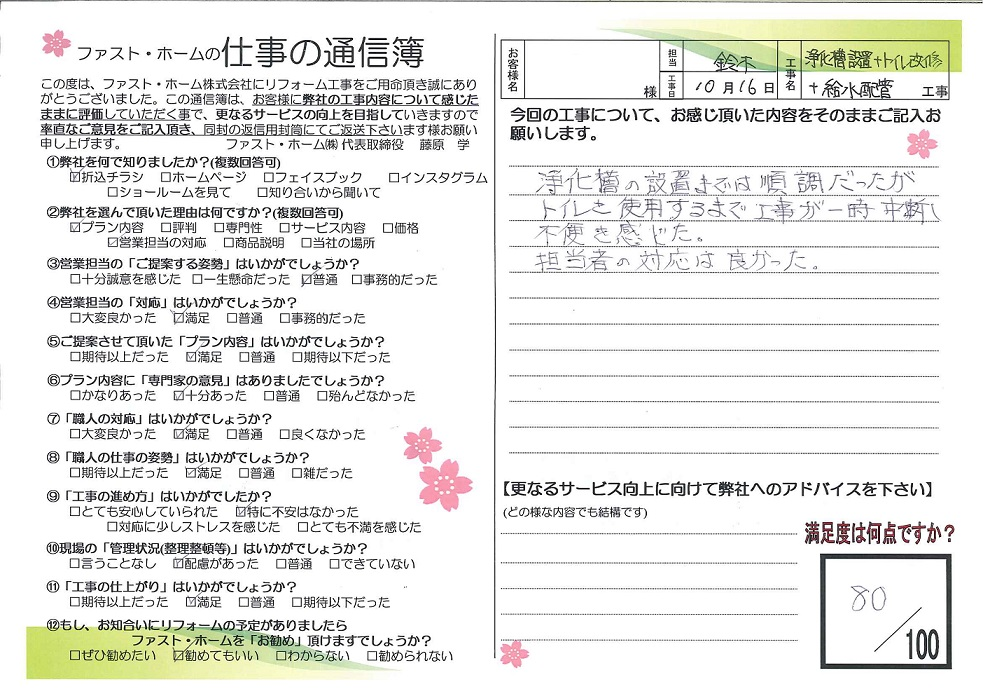 ファスト・ホームの仕事の通信簿
この度は、ファスト・ホーム株式会社にリフォーム工事をご用命頂き誠にあり
がとうございました。この通信簿は、お客様に弊社の工事内容について感じた
ままに評価していただく事で、更なるサービスの向上を目指していきますので
率直なご意見をご記入頂き、同封の返信用封筒にてご返送下さいます様お願い
申し上げます。 ファスト・ホーム㈱ 代表取締役 藤原 学
①弊社を何で知りましたか?(複数回答可)
☑折込チラシ □ホームページ □フェイスブック □インスタグラム
□ショールームを見て □知り合いから聞いて
②弊社を選んで頂いた理由は何ですか?(複数回答可)
☑プラン内容 □評判 □専門性 □サービス内容 □価格
☑営業担当の対応 □商品説明 □当社の場所
③営業担当の「ご提案する姿勢」はいかがでしょうか?
□十分誠意を感じた □一生懸命だった ☑普通 □事務的だった
④営業担当の「対応」はいかがでしょうか?
□大変良かった ☑満足 □普通 □事務的だった
⑤ご提案させて頂いた「プラン内容」はいかがでしょうか?
□期待以上だった ☑満足 □普通 □期待以下だった
⑥プラン内容に「専門家の意見」はありましたでしょうか?
□かなりあった ☑十分あった □普通 □殆んどなかった
⑦「職人の対応」はいかがでしょうか?
□大変良かった ☑満足 □普通 □良くなかった
⑧「職人の仕事の姿勢」はいかがでしょうか?
□期待以上だった ☑満足 □普通 □雑だった
⑨「工事の進め方」はいかがでしたか?
□とても安心していられた ☑特に不安はなかった
□対応に少しストレスを感じた □とても不満を感じた
⑩現場の「管理状況(整理整頓等)」はいかがでしょうか?
□言うことなし ☑配慮があった □普通 □できていない
⑪「工事の仕上がり」はいかがでしょうか?
□期待以上だった ☑満足 □普通 □期待以下だった
⑫もし、お知合いにリフォームの予定がありましたら
ファスト・ホームを「お勧め」頂けますでしょうか?
□ぜひ勧めたい ☑勧めてもいい □わからない □勧められない
お客様名 様
担当 鈴木
工事日 10月16日
工事名 浄化槽設置+トイレ改修
+給水配管 工事
今回の工事について、お感じ頂いた内容をそのままご記入お
願いします。
浄化槽の設置までは順調だったが
トイレを使用するまで工事が一時中断し
不便を感じた。
担当者の対応は良かった。
【更なるサービス向上に向けて弊社へのアドバイスを下さい】
(どの様な内容でも結構です)
満足度は何点ですか?
80/100